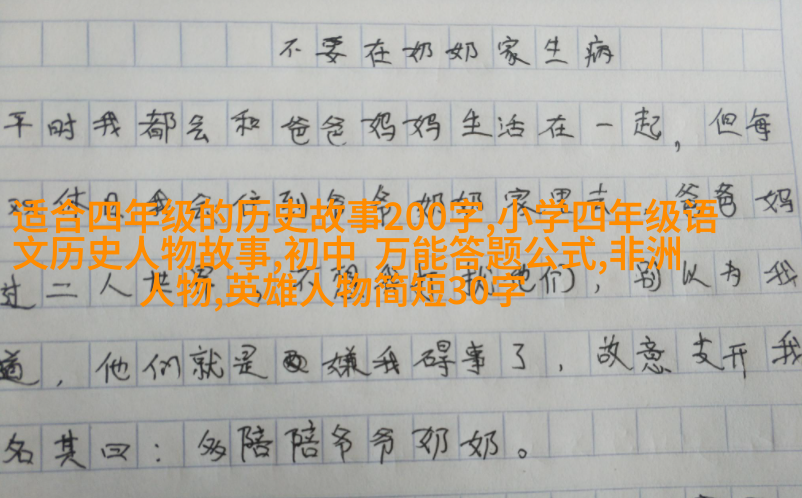 不要在奶奶家生病
平时我都会和爸爸妈妈生活在一起，但每
会住到爷爷奶奶家里去 爸爸妈
适合四年级的历史故事200字,小学四年级语
文历史人物故事,初中 万能答题公式,非洲
人物,英雄人物简短30字
过二人世界 不想 们），别以为我
道，他们就是嫌我碍事了，故意支开我
名其曰：多陪陪爷爷奶奶。